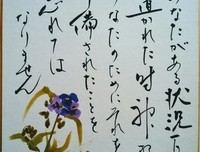 あなたがある状況下に
置かれた時神が
あなたのためにそれを
準備されたことを
忘れては
なりません